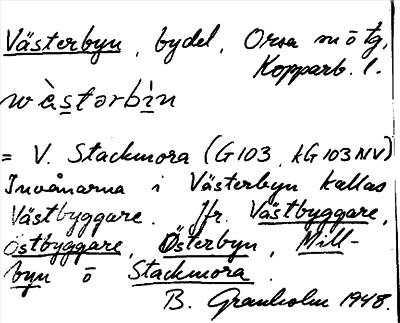 Västerbyn, bydel, Orsa sn ö tg,
Kopparb. l.
wàstərbìn
= V. Stackmora (G103, kG103NV)
Invånarna i Västerbyn kallas
Västbyggare. Jfr. Västbyggare,
Östbyggare, Österbyn, Mill-
byn o Stackmora.
B. Granholm 1948.